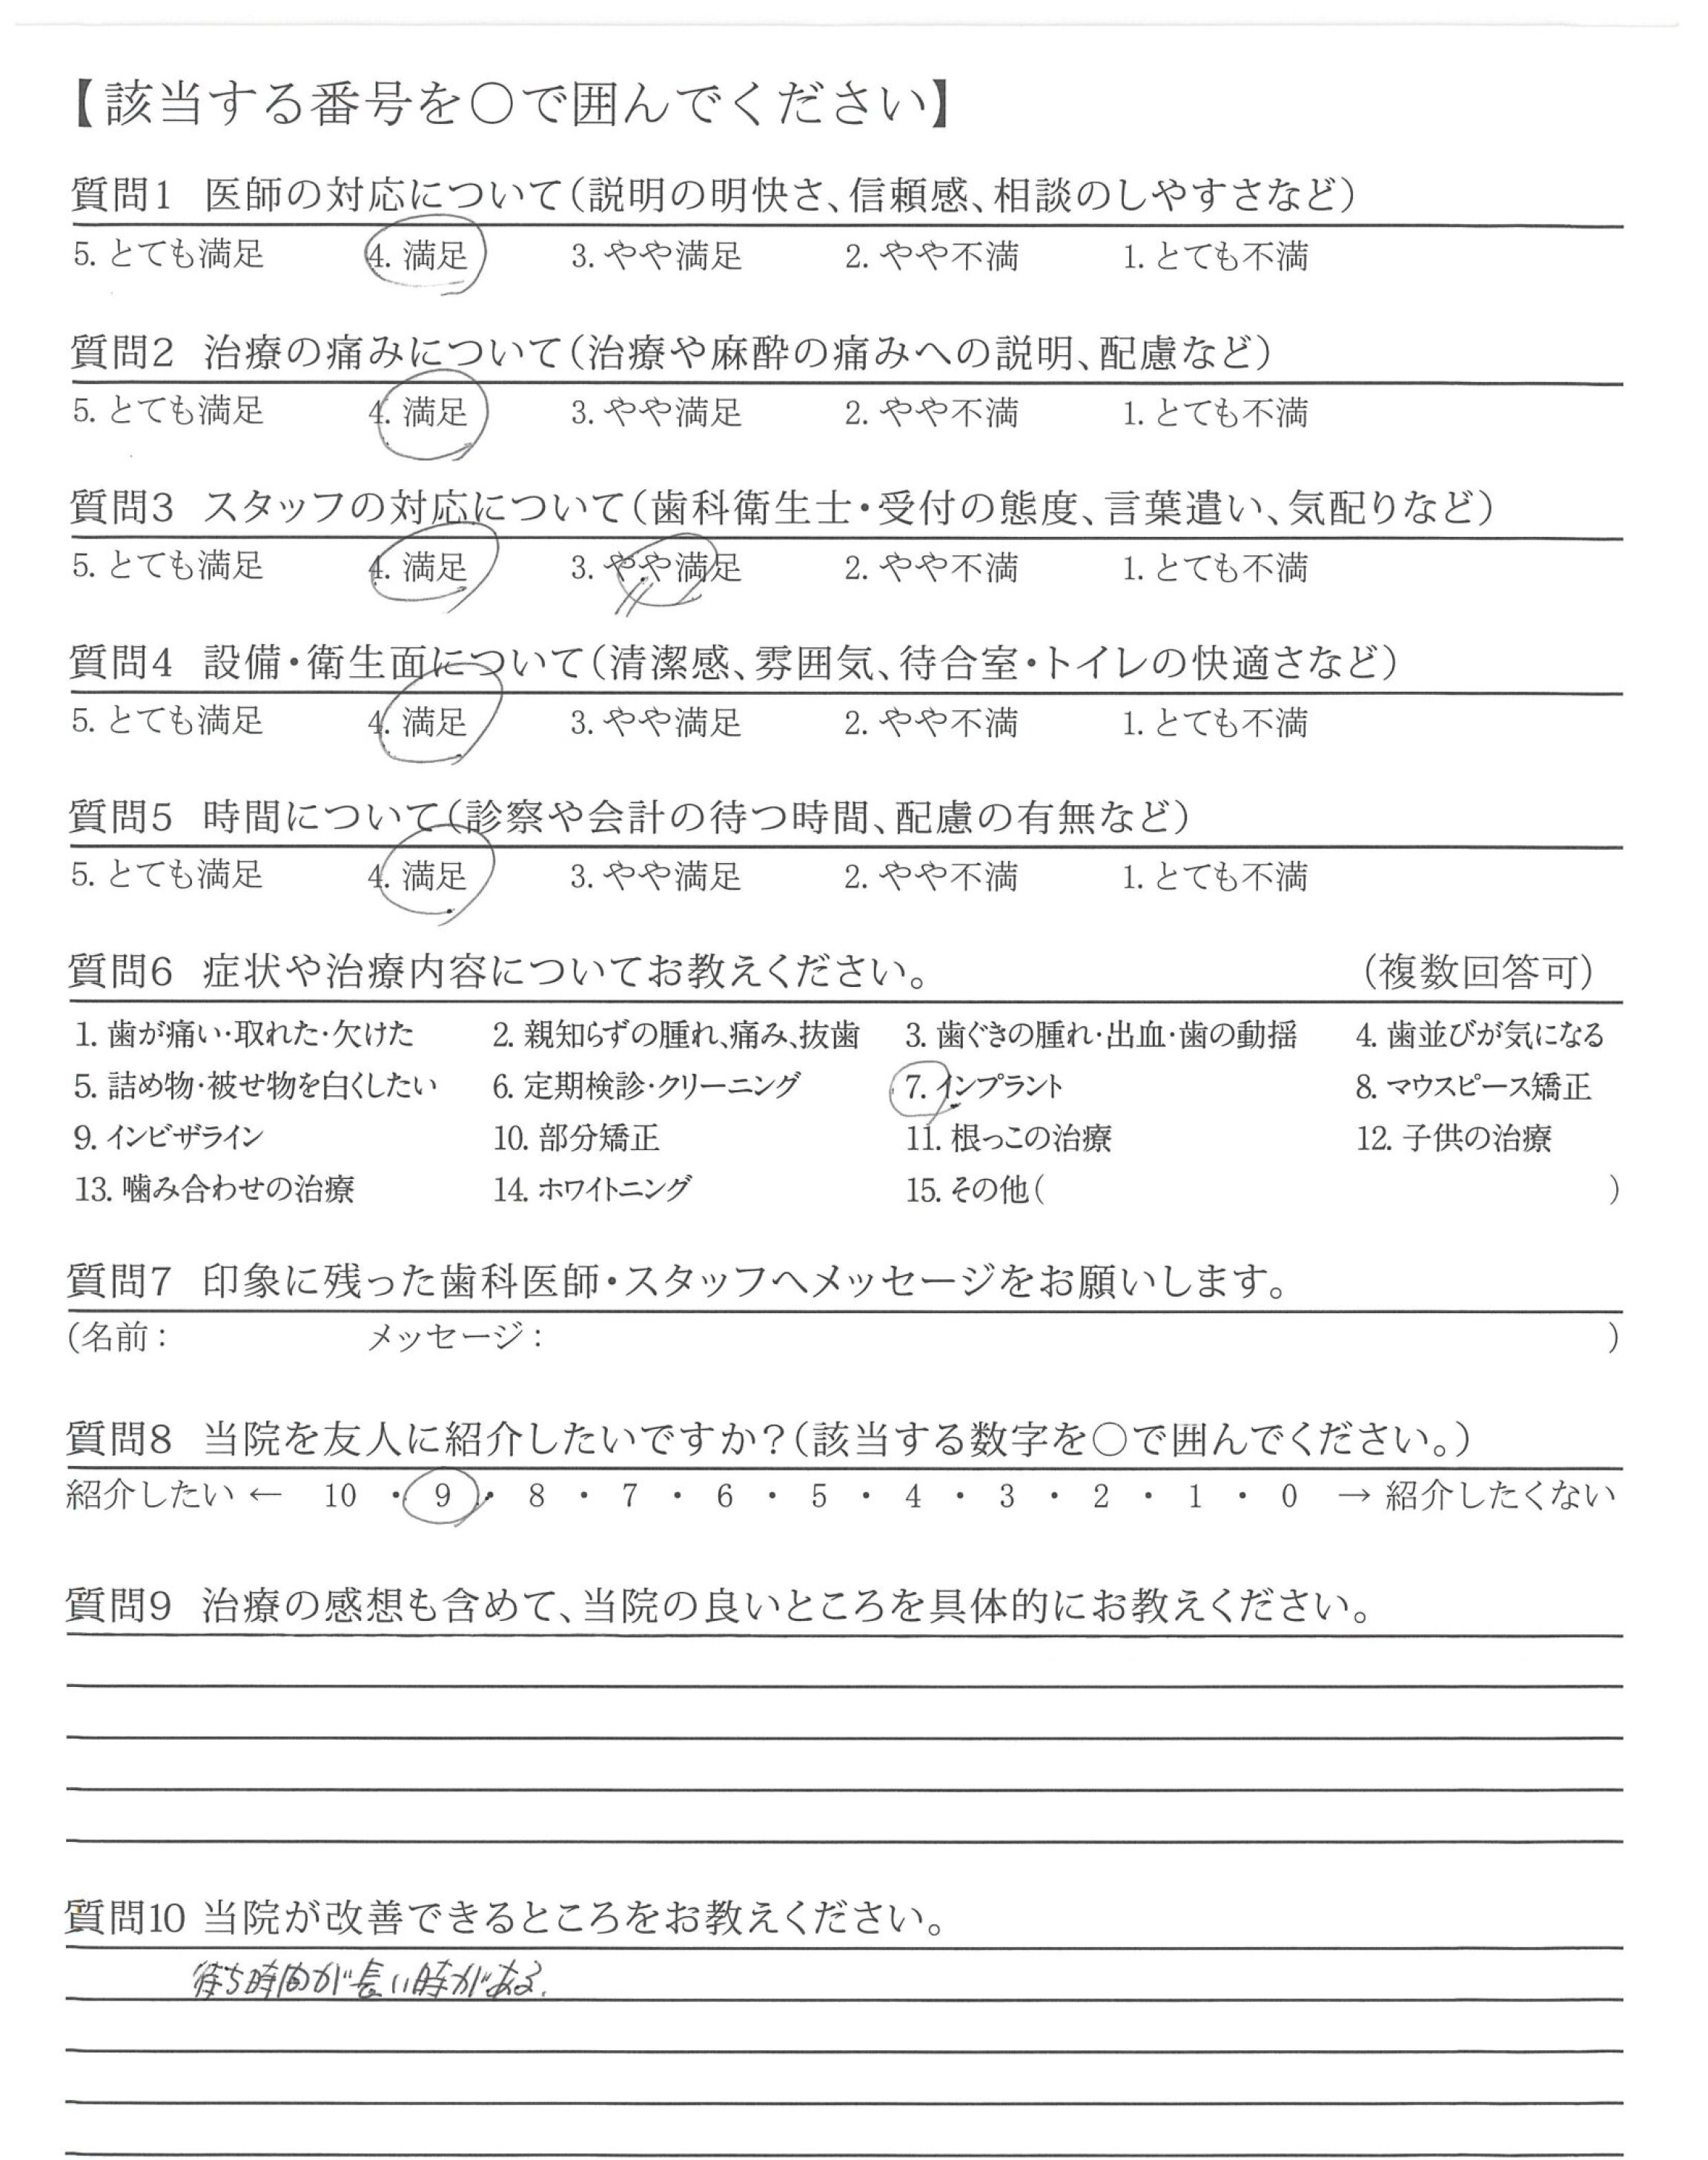 【該当する番号を○で囲んでください】
質問1 医師の対応について（説明の明快さ、信頼感、相談のしやすさなど）
5. とても満足 4. 満足 3. やや満足 2. やや不満 1. とても不満
質問2 治療の痛みについて（治療や麻酔の痛みへの説明、配慮など）
5. とても満足 4. 満足 3. やや満足 2. やや不満 1. とても不満
質問3 スタッフの対応について（歯科衛生士・受付の態度、言葉遣い、気配りなど）
5. とても満足 4. 満足 3. やや満足 2. やや不満 1. とても不満
質問4 設備・衛生面について（清潔感、雰囲気、待合室・トイレの快適さなど）
5. とても満足 4. 満足 3. やや満足 2. やや不満 1. とても不満
質問5 時間について（診察や会計の待つ時間、配慮の有無など）
5. とても満足 4. 満足 3. やや満足 2. やや不満 1. とても不満
質問6 症状や治療内容についてお教えください。 （複数回答可）
1. 歯が痛い・取れた・欠けた 2. 親知らずの腫れ、痛み、抜歯 3. 歯ぐきの腫れ・出血・歯の動揺 4. 歯並びが気になる
5. 詰め物・被せ物を白くしたい 6. 定期検診・クリーニング 7. インプラント 8. マウスピース矯正
9. インビザライン 10. 部分矯正 11. 根っこの治療 12. 子供の治療
13. 噛み合わせの治療 14. ホワイトニング 15. その他（ ）
質問7 印象に残った歯科医師・スタッフへメッセージをお願いします。
（名前： メッセージ： ）
質問8 当院を友人に紹介したいですか？（該当する数字を○で囲んでください。）
紹介したい ← 10 ・ 9 ・ 8 ・ 7 ・ 6 ・ 5 ・ 4 ・ 3 ・ 2 ・ 1 ・ 0 → 紹介したくない
質問9 治療の感想も含めて、当院の良いところを具体的にお教えください。
質問10 当院が改善できるところをお教えください。
待ち時間が長い時がある.